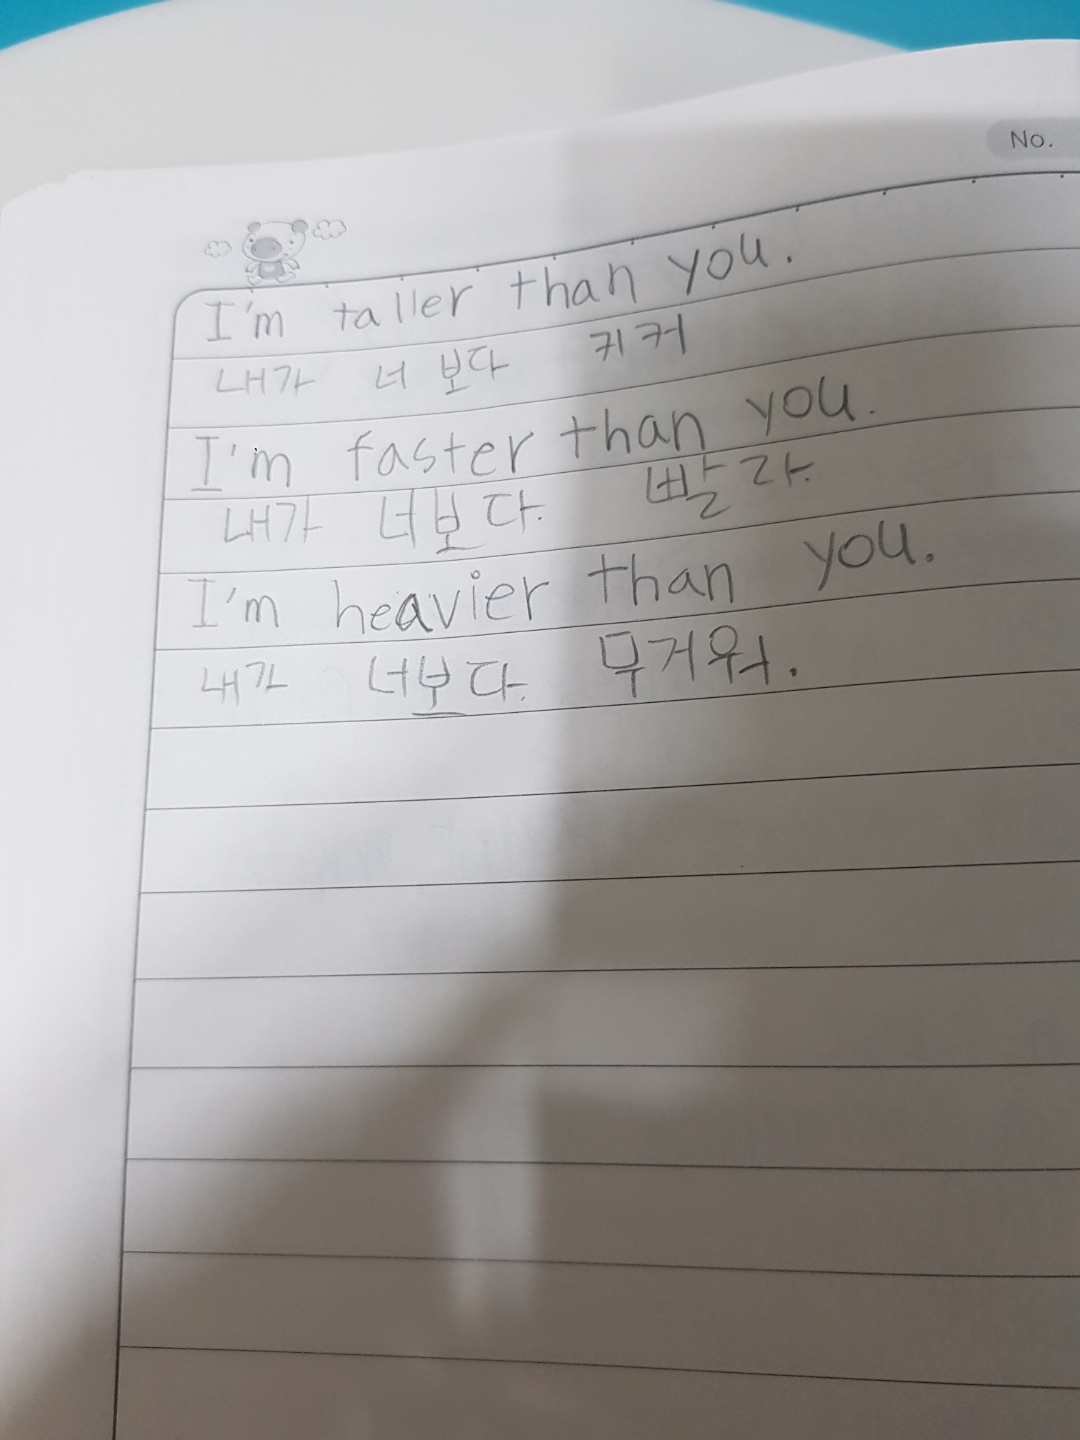 No.
I'm taller than you.
내가 너 보다 키커
I'm faster than you.
내가 너보다. 빨라.
I'm heavier than you.
내가 너보다. 무거워.